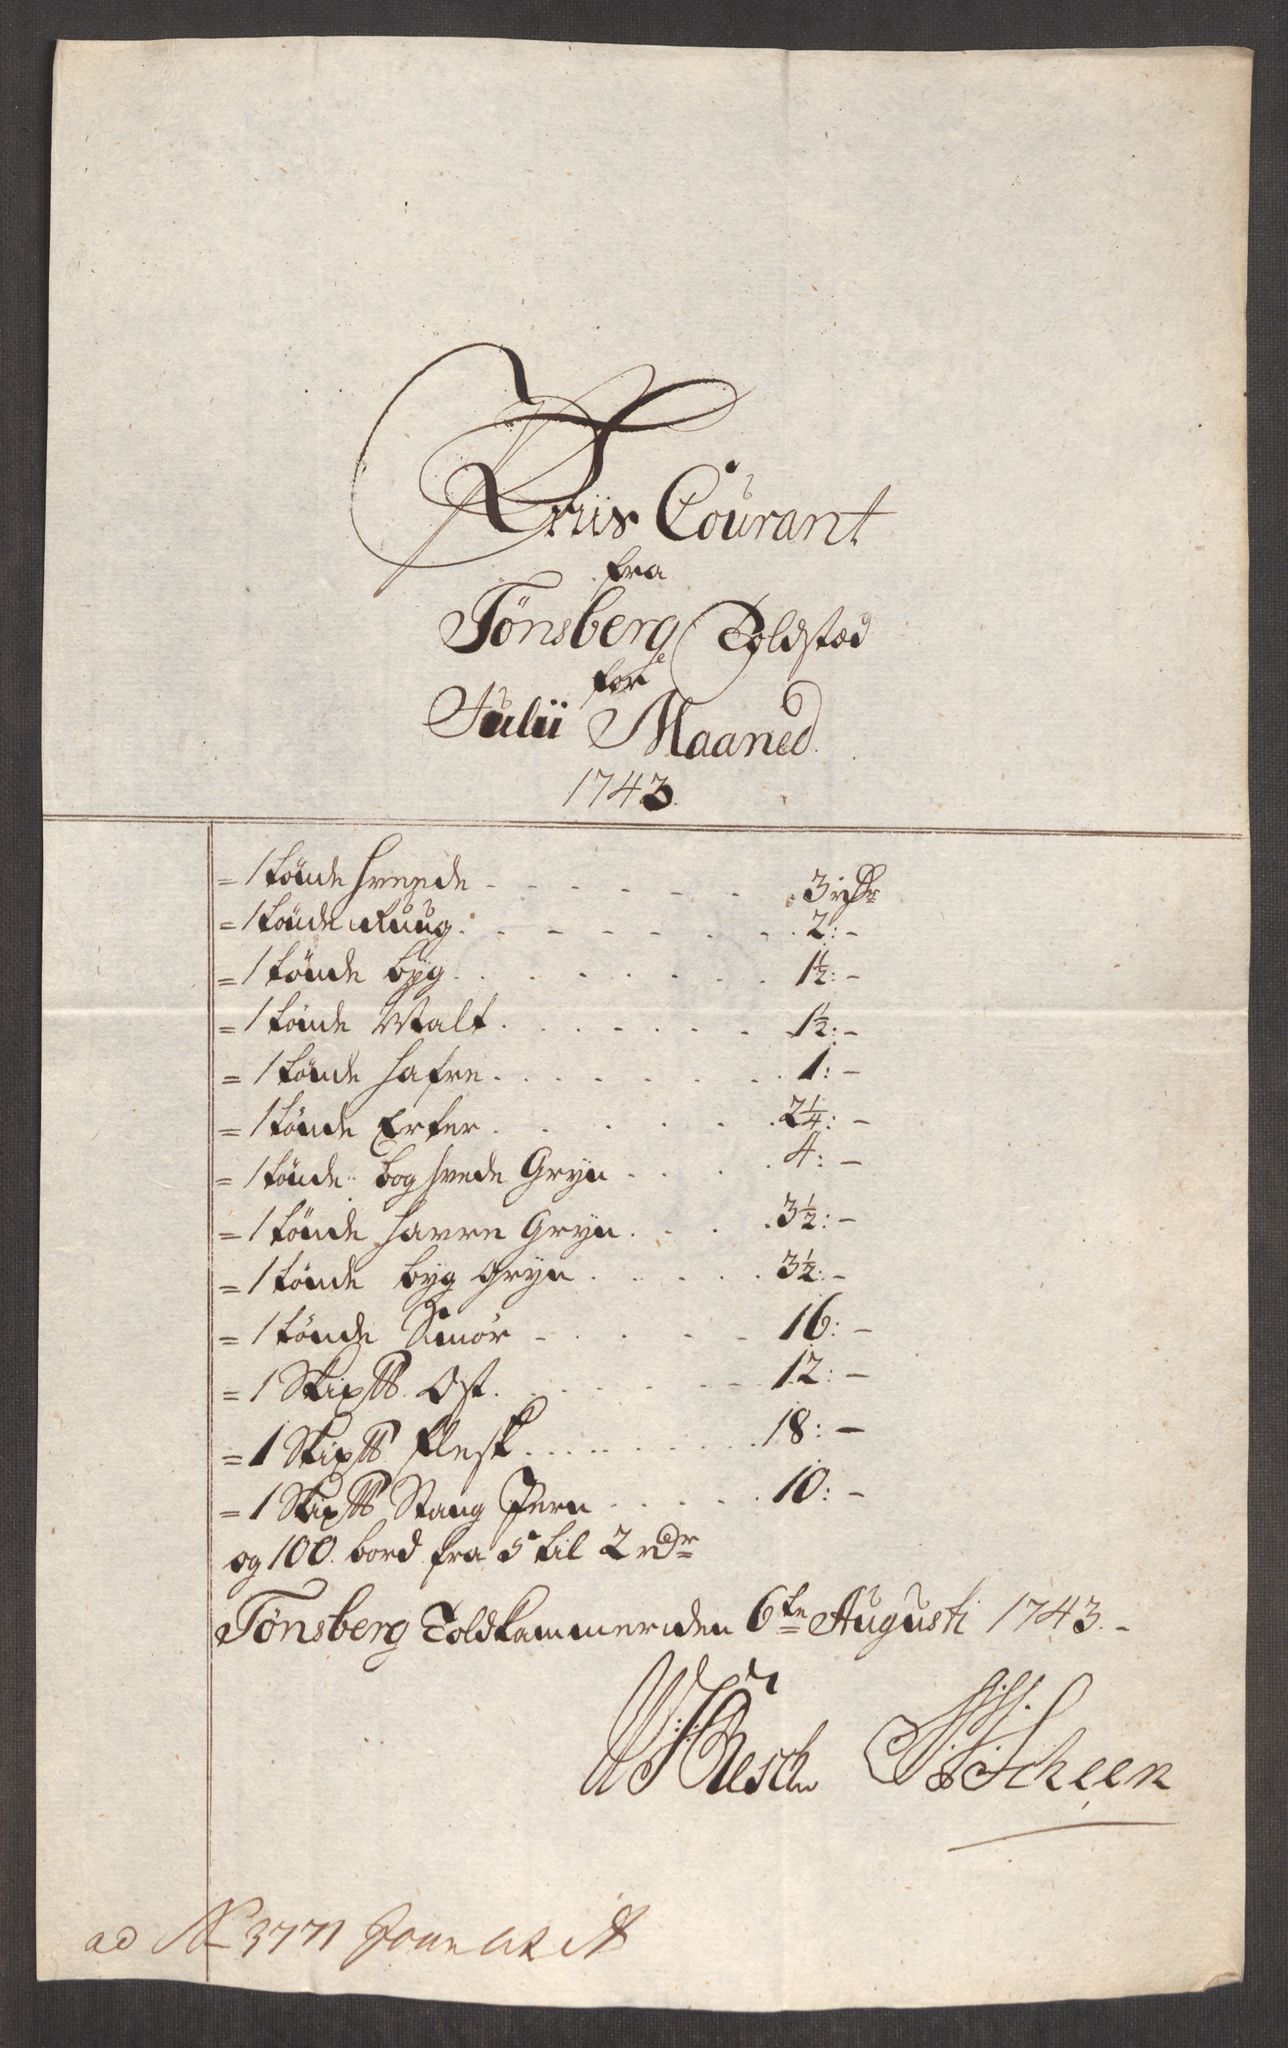 Priis Courant
fra
Tönsberg Toldstæd
for
Julii Maaned.
1743.
= 1 tönde hveede - - - - - - 3 rdr
= 1 tönde Ruug. - - - - - - 2: -
= 1 tönde byg. . . . . . . 1½: -
= 1 tönde Malt. . . . . . . 1½: -
= 1 tönde hafre. . . . . . . 1: -
= 1 tönde Erter. . . . . . 2¼: -
= 1 tönde boghvede Gryn . . . 4: -
= 1 tönde havre Gryn. . . . 3½: -
= 1 tönde byg Gryn . . . . . 3½: -
= 1 tönde Smör - . . . - - 16: -
= 1 Skip℔. Ost. . . . . . . 12: -
= 1 Skip℔ flesk. . . . . . . 18: -
= 1 Skip℔ Stang Jern . . . . . 10: -
og 100 bord fra 5 til 2 rdr
Tönsberg Toldkammer den 6te Augusti 1743. -
Resch Scheen
ad No 3771